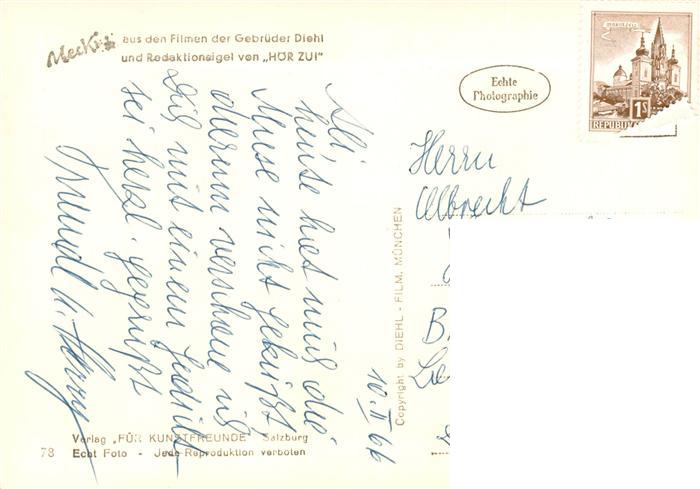 Mecki aus den Filmen der Gebrüder Diehl
und Redaktionsigel von „HÖR ZU!"
Echte
Photographie
MARIAZELL
1S
REPUBLIK
Herrn
Albrecht
Ali
heute hat mich die
Muse nicht geküßt
darum verschone ich
Dich mit einem Gedicht
sei herzl. gegrüßt
10. II 66
Copyright by DIEHL - FILM, MÜNCHEN
Verlag „FÜR KUNSTFREUNDE" Salzburg
78 Echt Foto - Jede Reproduktion verboten